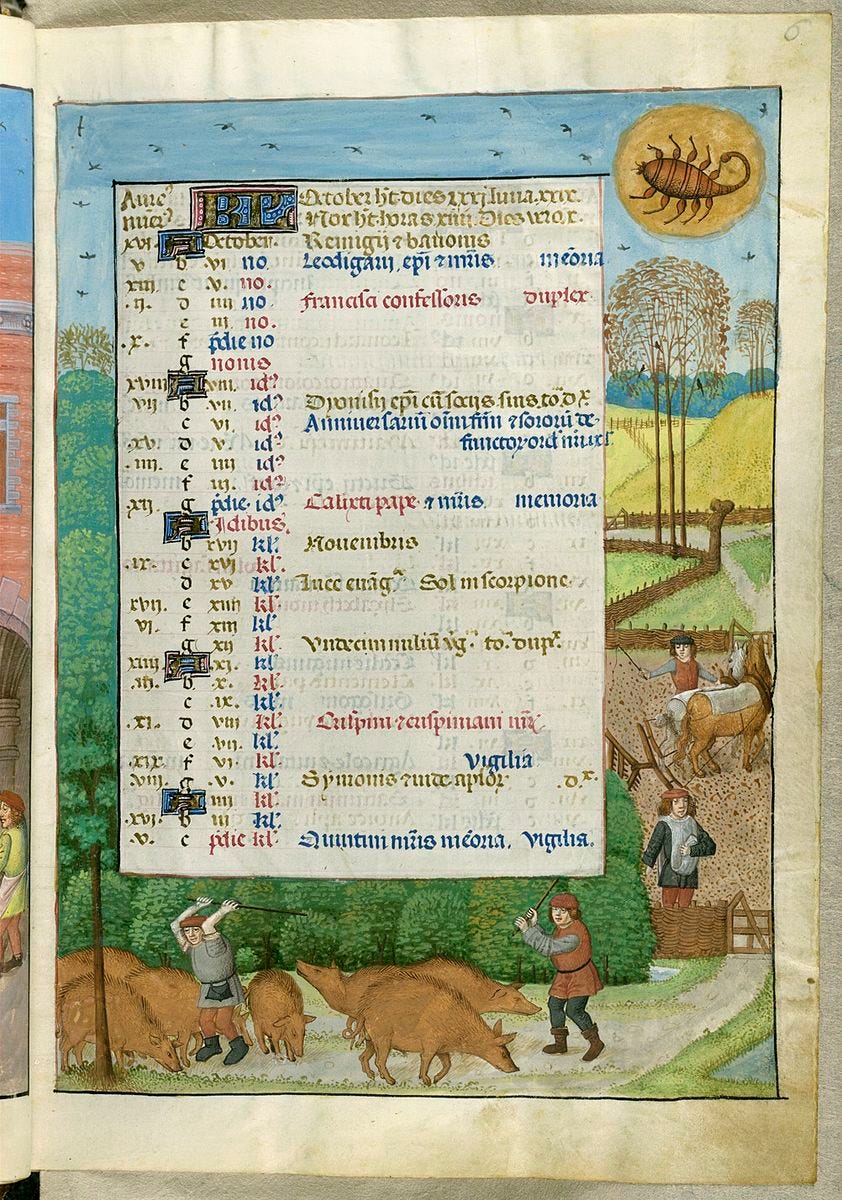 Aure⁹ KL October ht dies xxxi luna xxix.
nuer⁹ Nox ht horas xiiii. Dies vero x.
xvi A October. Remigij ⁊ bauonis
v b vi no Leodigarii, epi ⁊ mris memoria
xiii c v. no.
.ii. d iiii no francisci confessoris duplex
e iii no.
.x. f pdie no
g nonis
xviii A viii. id⁹
vii b vii. id⁹ Dyonisii epi cu socijs suis. to. d x
c vi. id⁹ Anniuersariu oim frm ⁊ sororu de
xv d v. id⁹ functor ord nri
.iiii. e iiii id⁹
f iii. id⁹
xii. g pdie. id⁹ Calixti pape ⁊ mris. memoria
A Idibus.
b xvii kl'. Nouembris
.ix. c xvi kl'.
d xv kl'. Luce euag. Sol in scorpione.
xvii. e xiiii kl'.
vi. f xiii kl'.
g xii kl'. Vndecim miliu vg. to. dup.
xiiii A xi. kl'.
.iii. b x. kl'.
c .ix. kl'.
.xi. d viii kl'. Crispini ⁊ crispiniani
e .vii. kl'.
.xix f vi. kl'. Vigilia
viii. g .v. kl'. Symonis ⁊ iude aplor .d.x.
A iiii kl'.
.xvi. b iii kl'.
.v. c pdie kl'. Quintini mris meoria. vigilia.
6